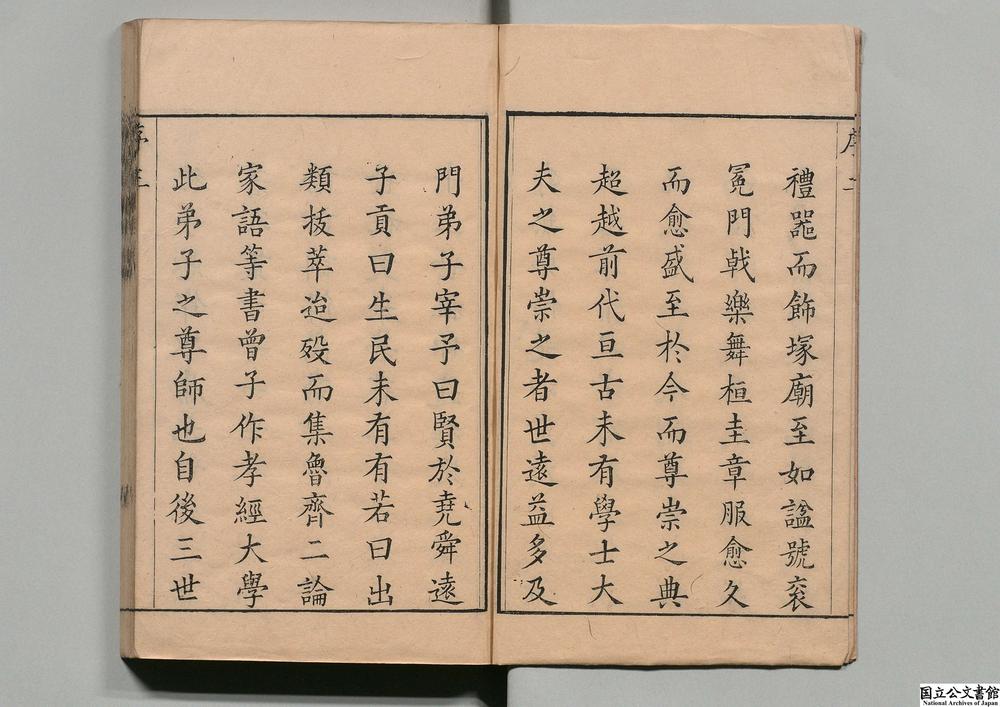 禮器而飾塚廟至如諡號衮
冕門戟樂舞桓圭章服愈久
而愈盛至於今而尊崇之典
超越前代亘古未有學士大
夫之尊崇之者世遠益多及
門弟子宰予曰賢於堯舜遠
子貢曰生民未有有若曰出
類拔萃迨殁而集魯齊二論
家語等書曾子作孝經大學
此弟子之尊師也自後三世
国立公文書館
National Archives of Japan